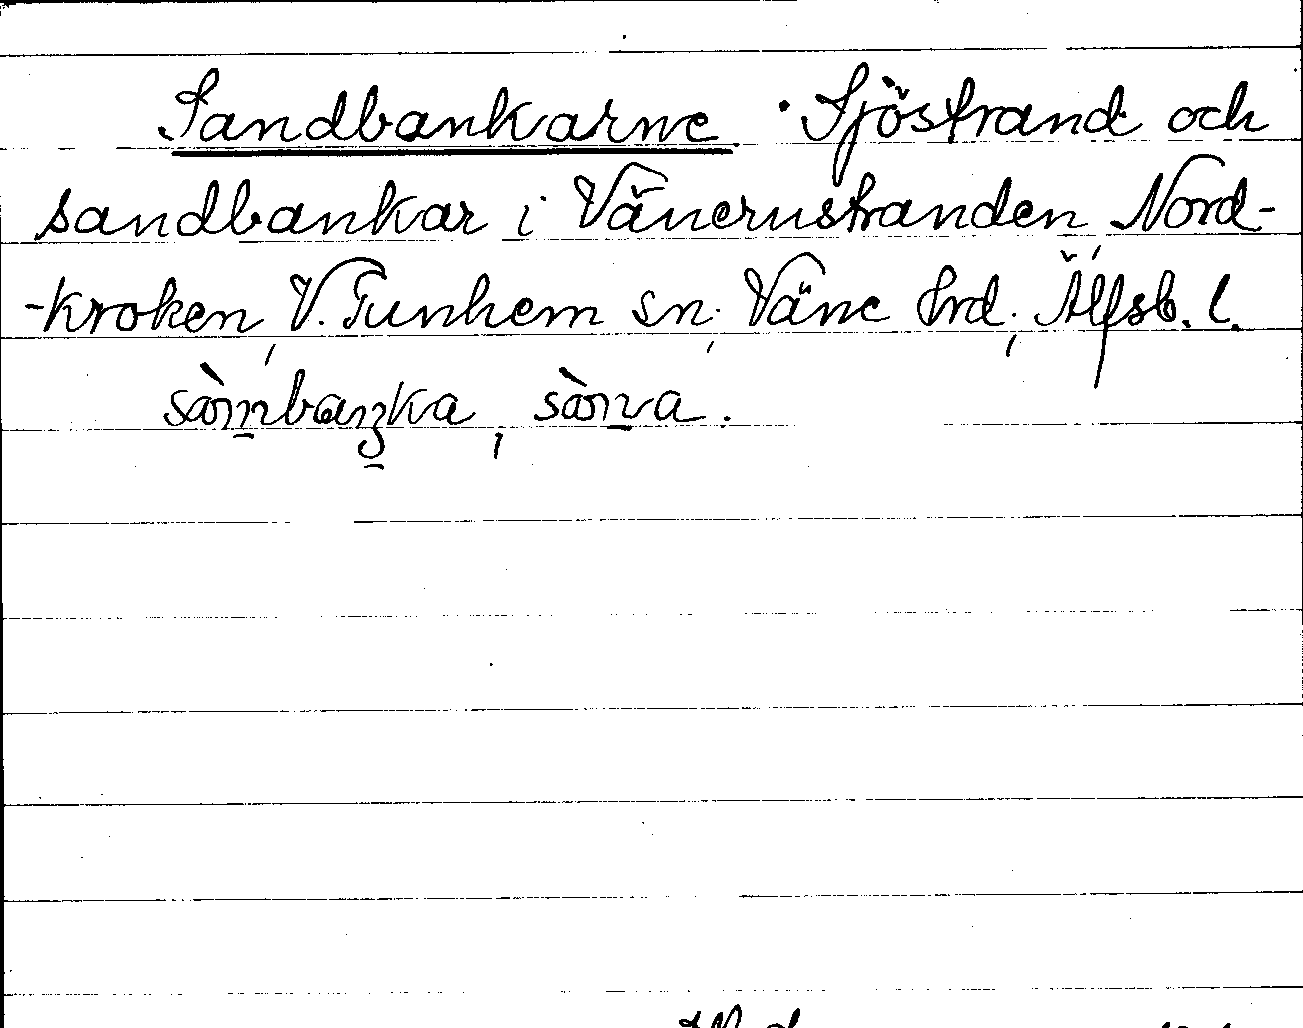 Sandbankarne. Sjöstrand och
sandbankar i Vänernstranden Nord-
-kroken, V. Tunhem sn, Väne hrd, Älfsb. l.
sàmbaŋka, sàna.